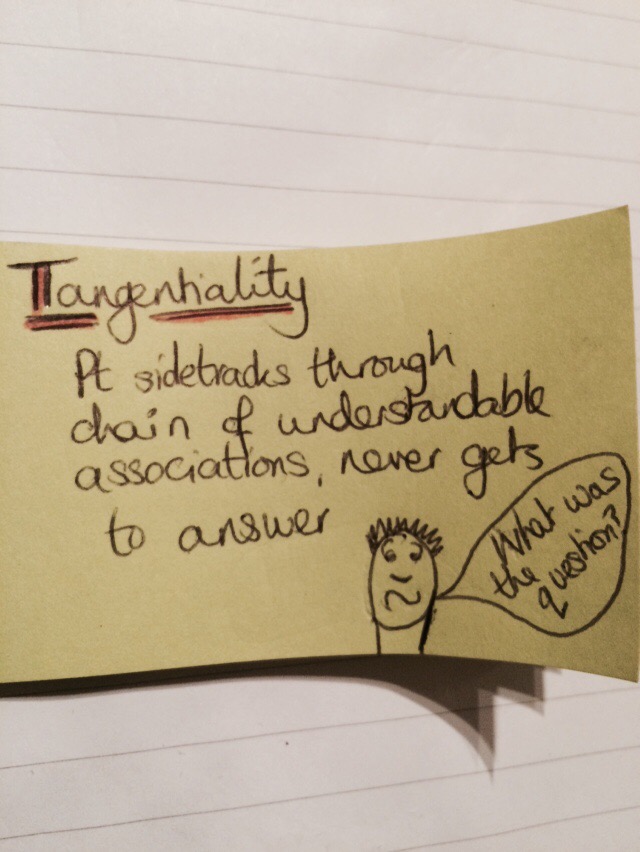 Tangentiality
Pt sidetracks through
chain of understandable
associations, never gets
to answer
What was
the
question?